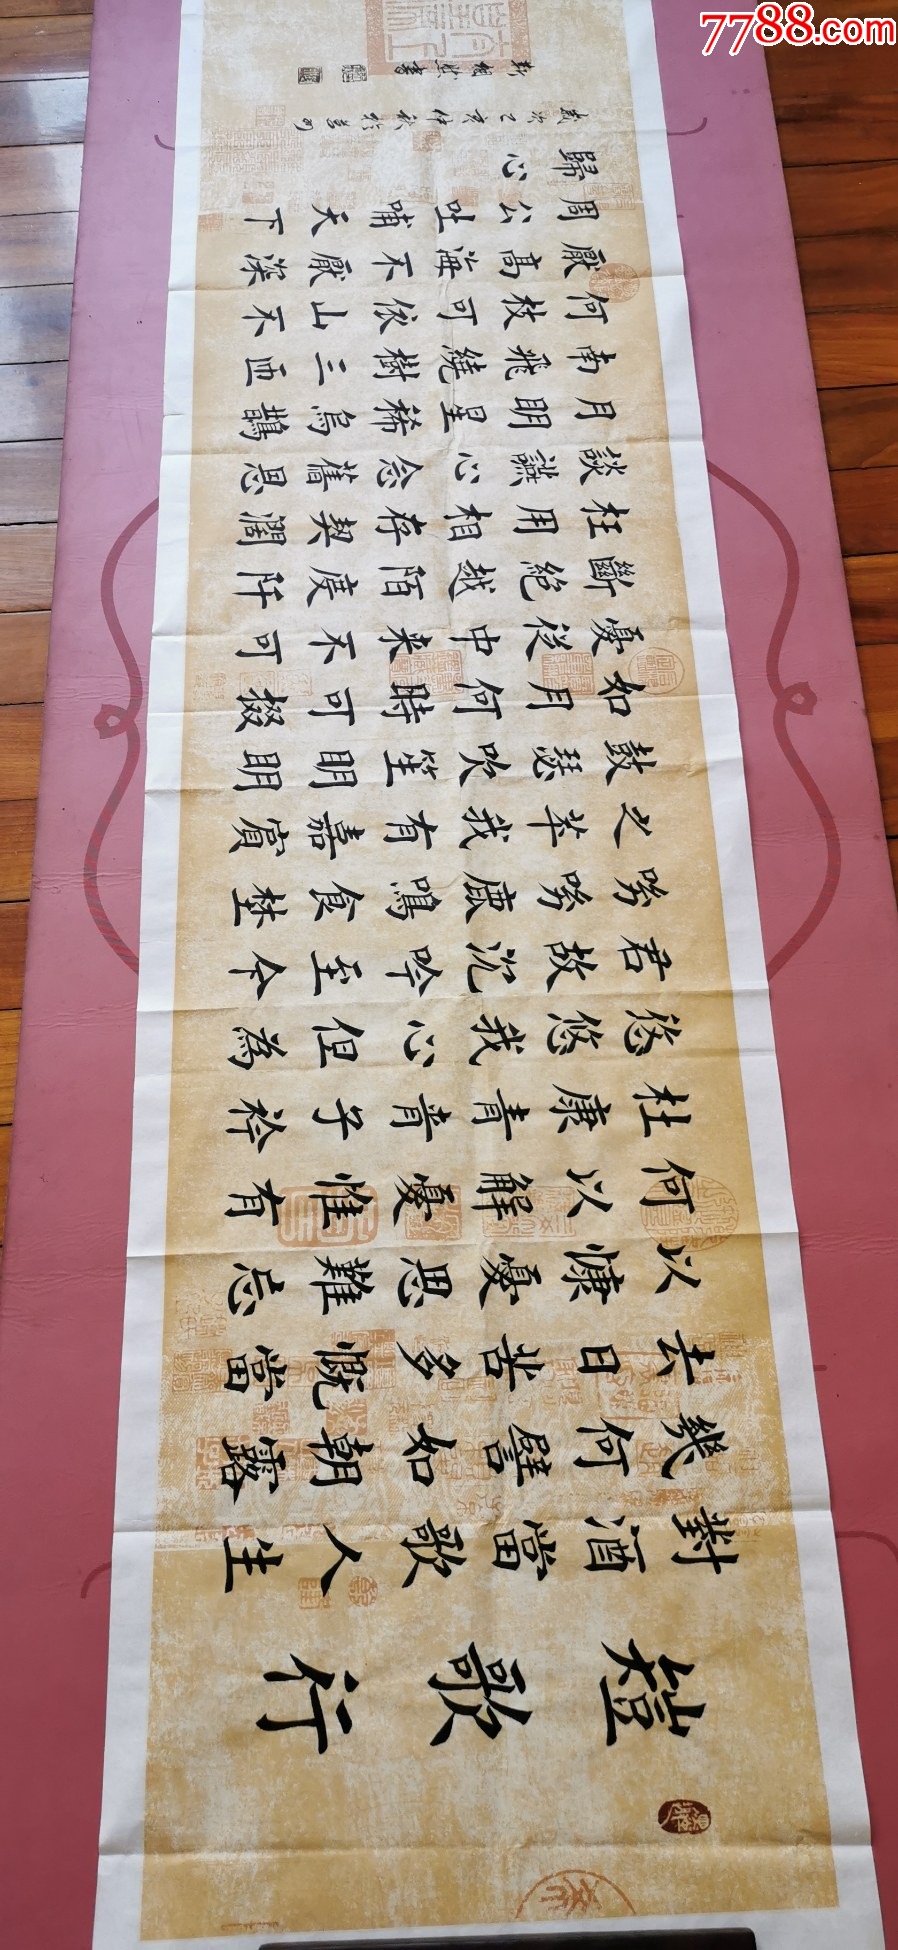 7788.com
短歌行
對酒當歌人生
幾何譬如朝露
去日苦多慨當
以慷憂思難忘
何以解憂惟有
杜康青青子衿
悠悠我心但為
君故沉吟至今
呦呦鹿鳴食埜
之苹我有嘉賓
鼓瑟吹笙明明
如月何時可掇
憂從中来不可
斷絕越陌度阡
枉用相存契濶
談讌心念舊恩
月明星稀烏鵲
南飛繞樹三匝
何枝可依山不
厭高海不厭深
周公吐哺天下
歸心
歲次己亥仲秋於
書